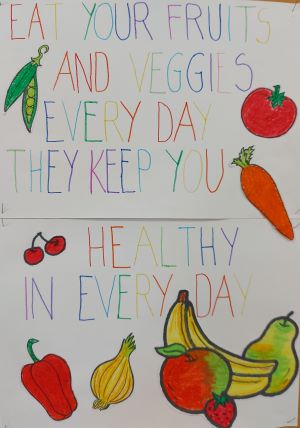 EAT YOUR FRUITS
AND VEGGIES
EVERY DAY
THEY KEEP YOU
HEALTHY
IN EVERY DAY